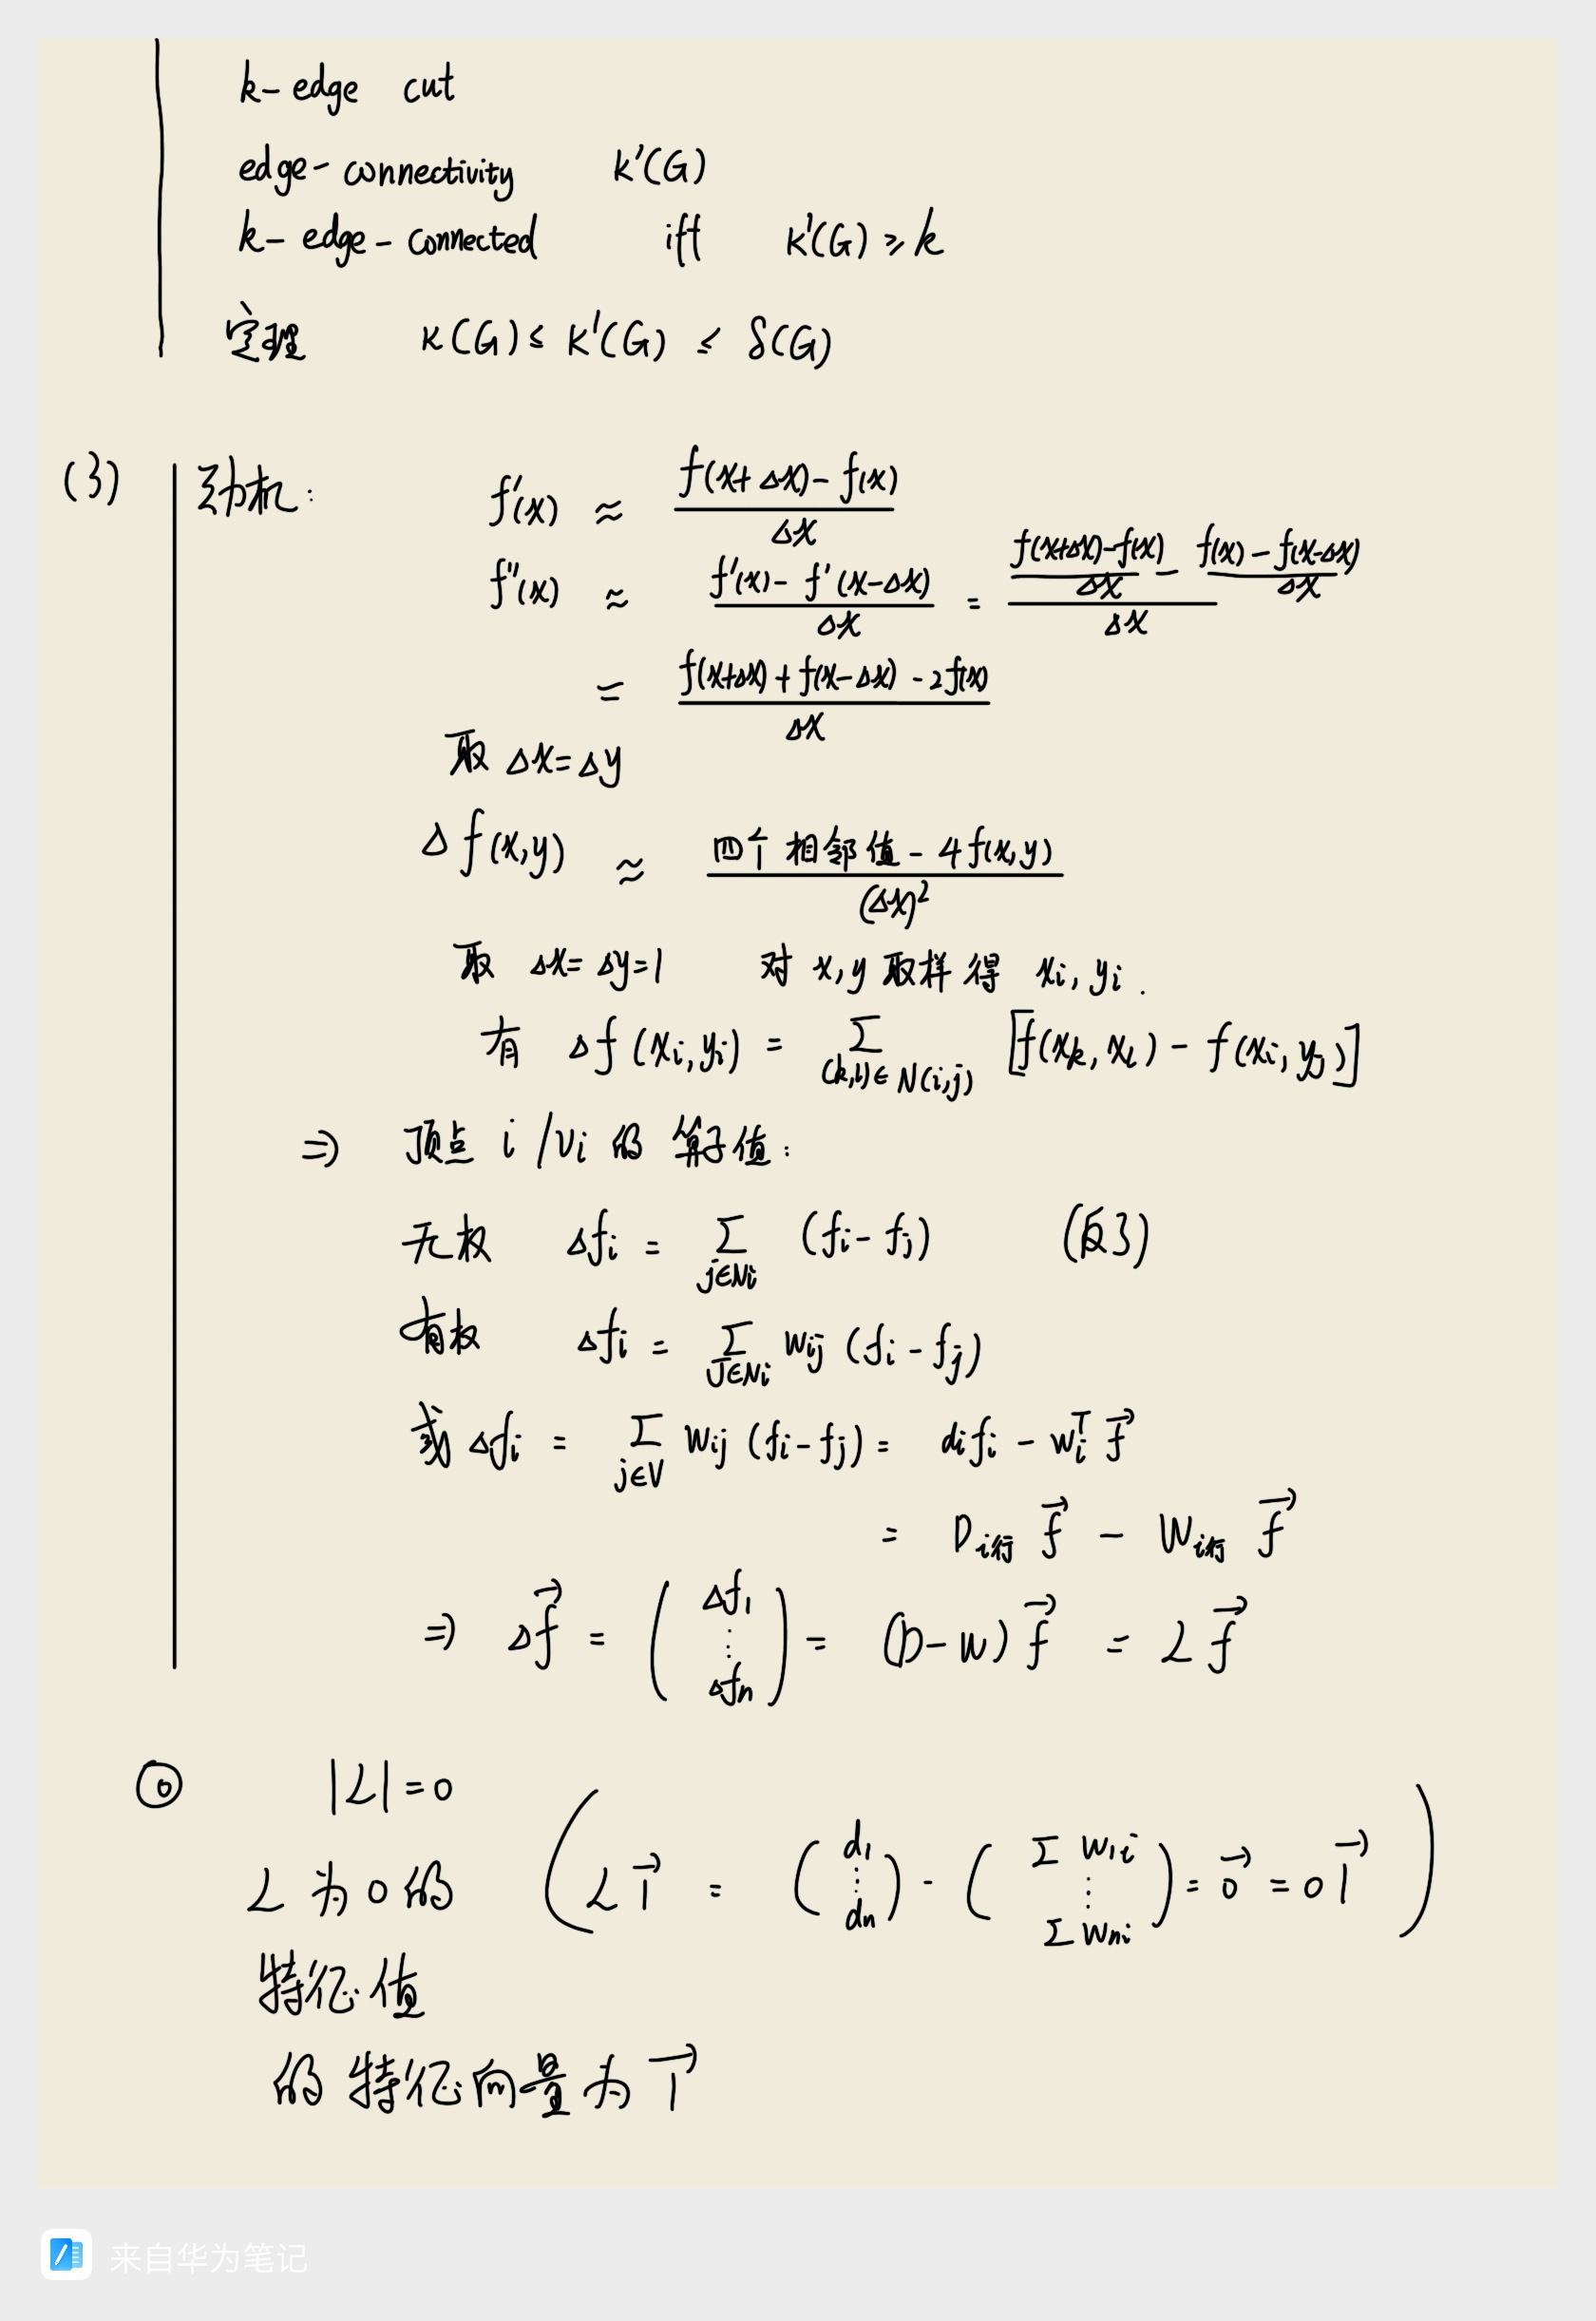 k- edge cut
edge-connectivity κ'(G)
k-edge-connected iff κ'(G) ≥ k
定理 κ(G) ≤ κ'(G) ≤ δ(G)
(3) 动机: f'(x) ≈ (f(x+Δx) - f(x)) / Δx
f''(x) ≈ (f'(x) - f'(x-Δx)) / Δx = ((f(x+Δx)-f(x))/Δx - (f(x)-f(x-Δx))/Δx) / Δx
= (f(x+Δx) + f(x-Δx) - 2f(x)) / Δx
取 Δx=Δy
Δf(x,y) ≈ (四个相邻值 - 4f(x,y)) / (Δx)²
取 Δx=Δy=1 对 x,y 取样得 xi, yi.
有 Δf(xi,yi) = Σ_{(k,l)∈N(i,j)} [f(xk, xl) - f(xi, yj)]
⇒ 顶点 i/vi 的算子值:
无权 Δfi = Σ_{j∈Ni} (fi - fj) (反了)
有权 Δfi = Σ_{j∈Ni} wij (fi - fj)
或 Δfi = Σ_{j∈V} wij (fi - fj) = di fi - wi^T f⃗
= D_{i行} f⃗ - W_{i行} f⃗
⇒ Δf⃗ = (Δf1 ⋮ Δfn) = (D-W) f⃗ = L f⃗
⓪ |L| = 0
L 为 0 的 (L 1⃗ = (d1 ⋮ dn) - (Σ w1i ⋮ Σ wni) = 0⃗ = 0 1⃗)
特征值
的特征向量为 1⃗
来自华为笔记